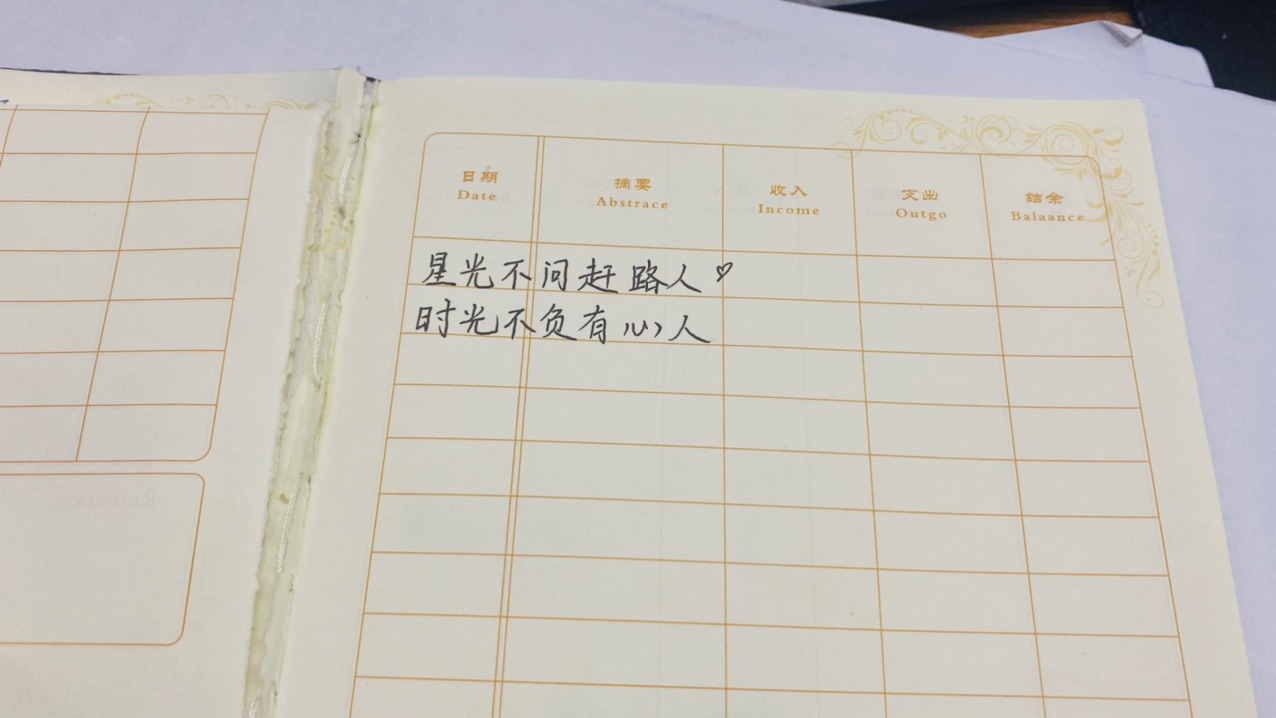 日期 摘要 收入 支出 结余
Date Abstrace Income Outgo Balaance
星光不问赶路人♡
时光不负有心人
Remarks: